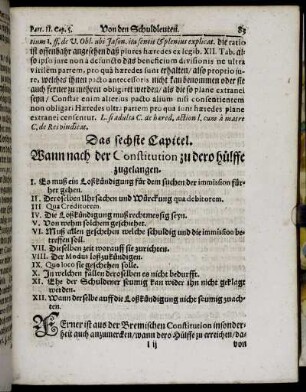 Part. II. Cap. 5. Von den Schuldleuten. 83
tium 1. ff. de V. Obl. ubi Jason. ita sentit Splenius explicat. die ratio
ist offenbahr angesehen daß plures hæredes ex legib. XII. Tab.
so ipso jure non a defuncto das beneficium divisionis ne ultra
virilem partem, pro qua hæredes sunt erhalten/ also proprio ju-
re, welches ihnen pacto antecessoris nicht kan benommen oder
auch ferner in mehren obligirt werden/ als die so plane extranei
seyn. Constat enim alterius pacto alium nisi consentientem
non obligari Hæredes ultra partem pro qua sunt hæredes plane
extranei censentur. L. si adulta C. de hæred. action l. cum à matre
C. de Rei vindicat.
Das sechste Capitel.
Wann nach der Constitution zu dero hülffe
zugelangen.
I. Es muß ein Loßkündigung für dem suchen der immission für-
her gehen.
II. Deroselben Uhrsachen und Würckung qua debitorem.
III. Qua Creditorem.
IV. Die Loßkündigung muß rechtmessig seyn.
V. Von wehm solchem geschehen soll.
VI. Muß allen geschehen welche schuldig und die immission be-
treffen soll.
VII. Dieselben zeit worauff sie zurichten.
VIII. Der Modus loßzukündigen.
IX. Qua loco sie geschehen solle.
X. In welchen fällen deroselben es nicht bedürfft.
XI. Ehe der Schuldener seumig kan wider ihn nicht geklagt
werden.
XII. Wann derselbe auff die Loßkündigung nicht seumig zu ach-
ten.
FErner ist aus der Bremischen Constitution insonder-
heit auch anzumercken/ wann dero Hülffe zu erreichen/ da-
von